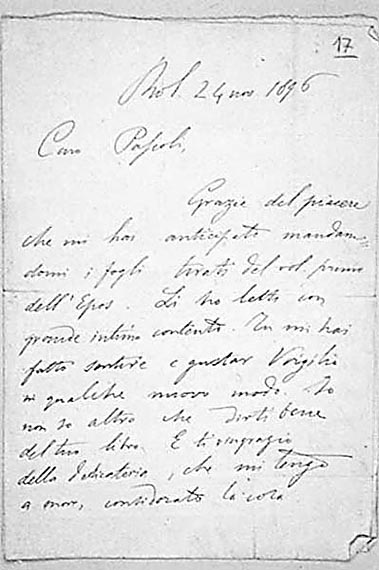 17
Bol. 24 nov. 1896
Caro Pascoli,
Grazie del piacere
che mi hai anticipato mandan=
domi i fogli tirati del vol. primo
dell'Epos. Li ho letti con
grande intimo contento. Tu mi hai
fatto sentire e gustar Vergilio
in qualche nuovo modo. Io
non so altro che dirti bene
del tuo libro. E ti ringrazio
della delicateria, che mi tengo
a onore, considerato la cosa